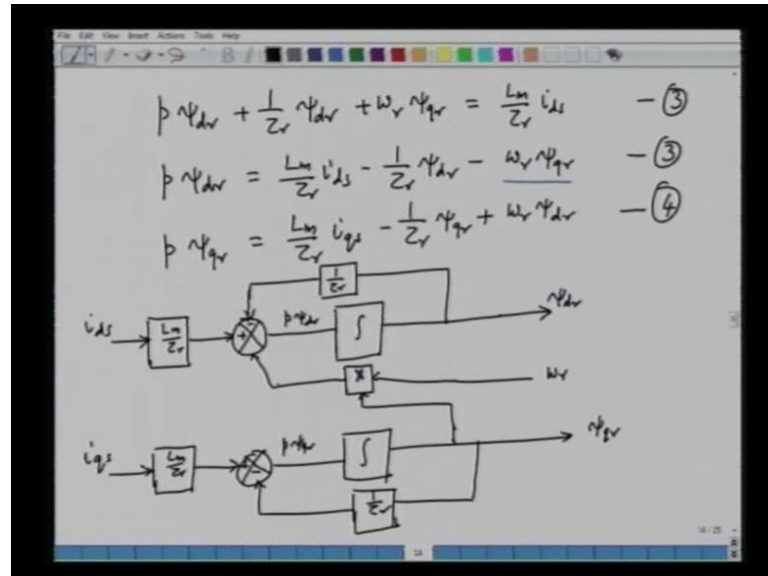 File Edit View Insert Actions Tools Help
p ψdr + 1/τr ψdr + ωr ψqr = Lm/τr ids - ③
p ψdr = Lm/τr ids - 1/τr ψdr - ωr ψqr - ③
p ψqr = Lm/τr iqs - 1/τr ψqr + ωr ψdr - ④
1/τr
ids Lm/τr + - - pψdr ∫ ψdr
* ωr
iqs Lm/τr + - - pψqr ∫ ψqr
1/τr
14 / 25
14